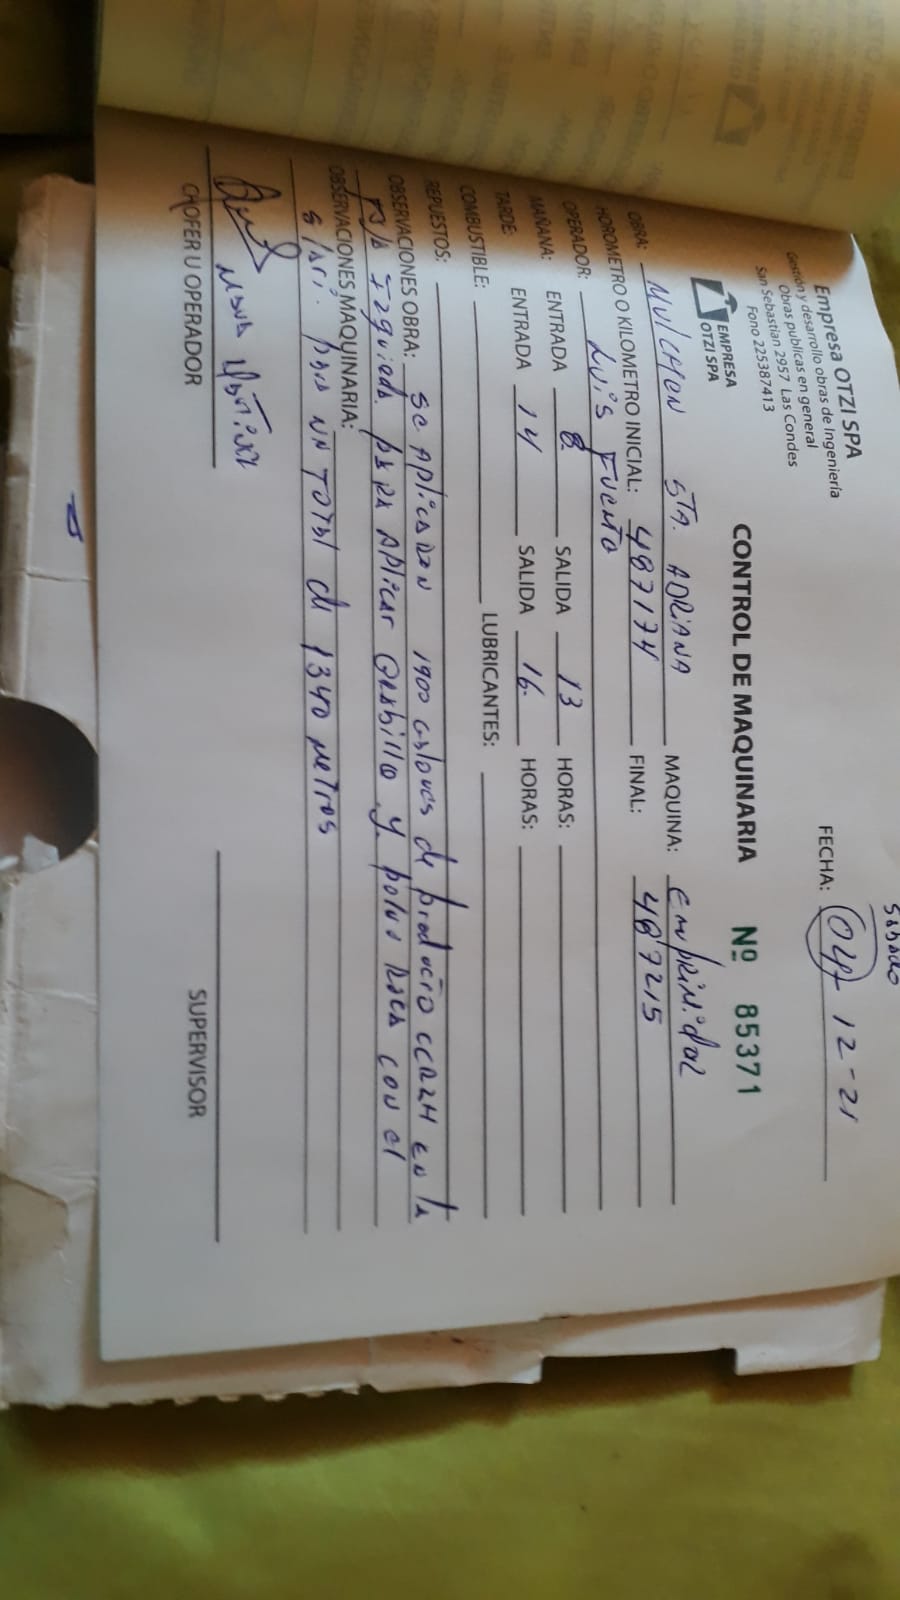 Sabado
Empresa OTZI SPA
Gestión y desarrollo obras de Ingeniería
Obras publicas en general
San Sebastian 2957 Las Condes
Fono 225387413
FECHA: 04 - 12 - 21
EMPRESA
OTZI SPA
CONTROL DE MAQUINARIA Nº 85371
OBRA: MUlCHEN STA. ADRIANA MAQUINA: EmpRiMidoR
HOROMETRO O KILOMETRO INICIAL: 487174 FINAL: 487215
OPERADOR: Luis
MAÑANA: ENTRADA 8. SALIDA 13 HORAS:
TARDE: ENTRADA 14 SALIDA 16. HORAS:
COMBUSTIBLE: LUBRICANTES:
REPUESTOS:
OBSERVACIONES OBRA: Se AplicaRon 1900 Galones de producto en la
Izquieda paRa Aplicar GRabillo y polvo Roca con el
OBSERVACIONES MAQUINARIA:
paRa UN TOTAl de 1340 Metros
CHOFER U OPERADOR
SUPERVISOR